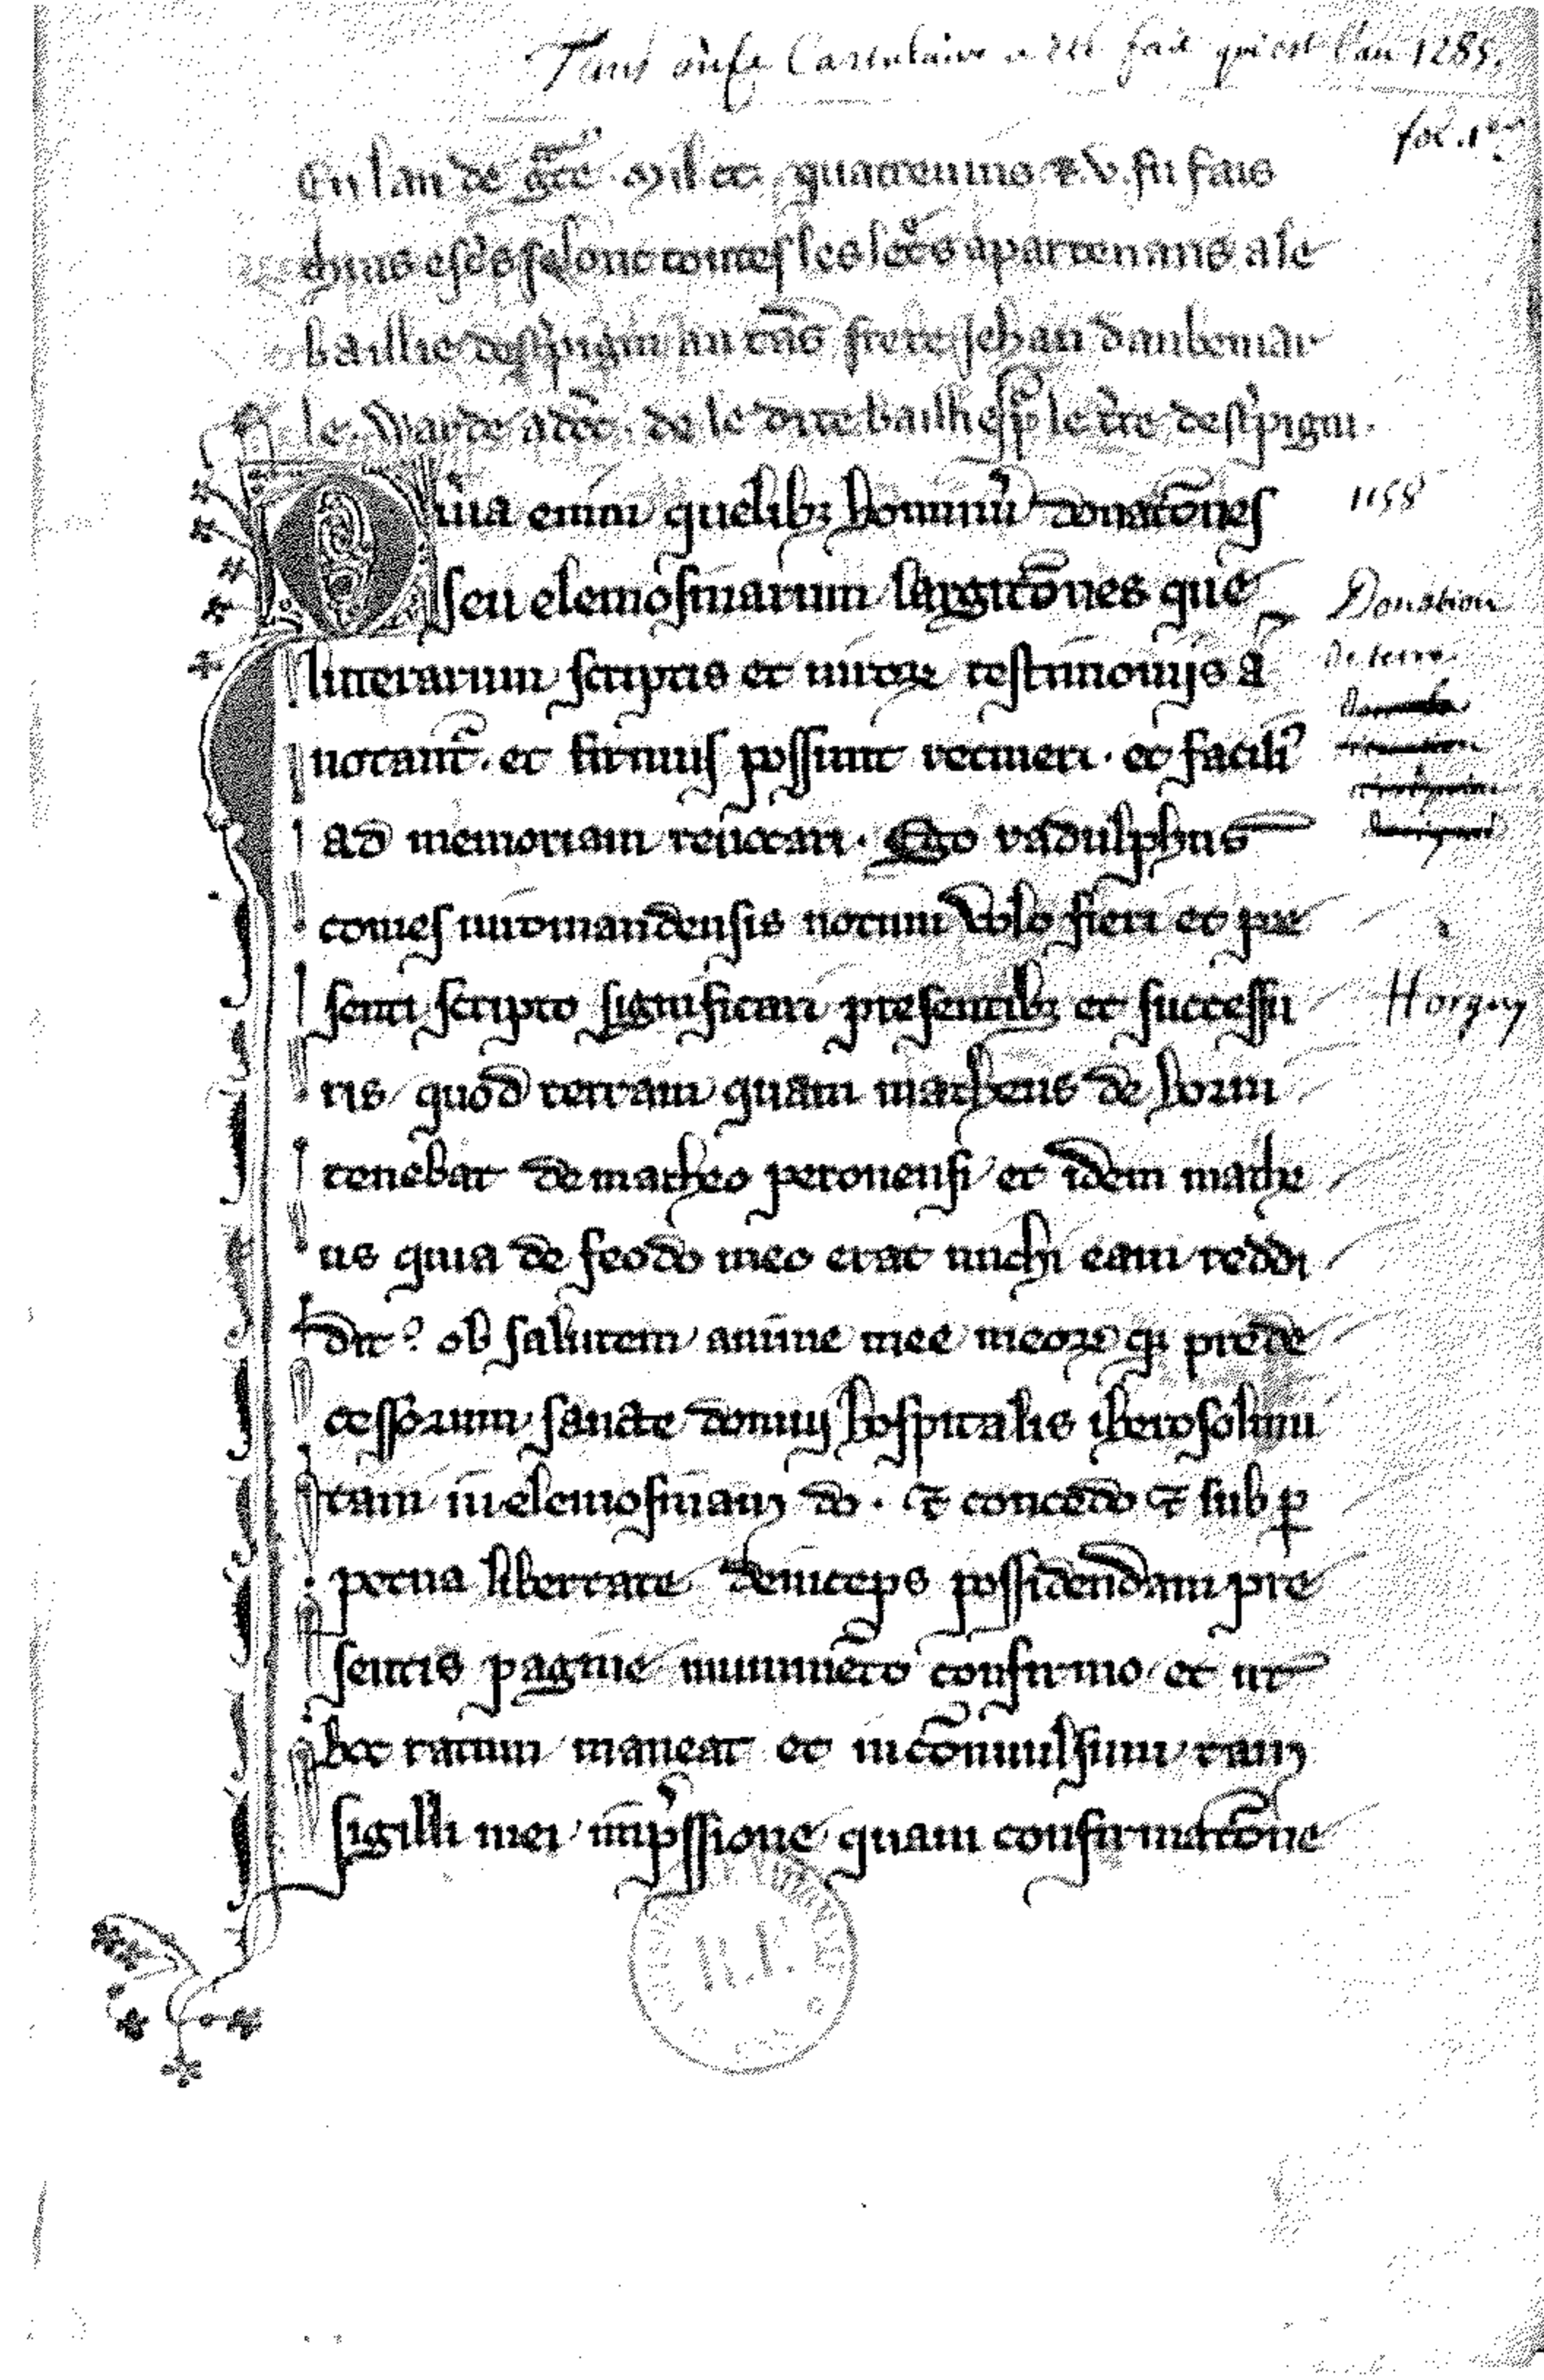 fait qui est l'an 1285.
fol. 1er
En lan de gr̄ce. Mil cc. quatreuins & .v. fu fais
selonc toutes les lēs apartenans a le
baillie despigni au tās frere Jehan daubemar
le. Warde adōc. de le dite baillie sͥ le tr̄e despigni.
Quia enim quelibꝫ hominū donatōnes
1158
seu elemosinarum largitōnes que
Donation
litterarum scriptis et uiroꝝ testimonijs a
De terre
notant᷑. et firmius possunt retineri. et faciliꝰ
ad memoriam reuocari. Ego radulphus
comes uiromandensis notum uolo fieri et pre
senti scripto significari presentibꝫ et succession
Horgny
ris quod terram quam matheus de horni
tenebat de matheo peronensi et idem mathe
us quia de feodo meo erat michi eam reddi
dit? ob salutem anime mee meoꝝ qꝫ prede
cessorum sancte domui hospitalis iherosolimi
tam in elemosinam do. & concedo & sub ꝑ
petua libertate deinceps possidendam pre
sentis pagine munimēto confirmo et ut
hoc ratum maneat et incōnuulsum tam
sigilli mei imp̄ssione quam confirmatōne
R.F.